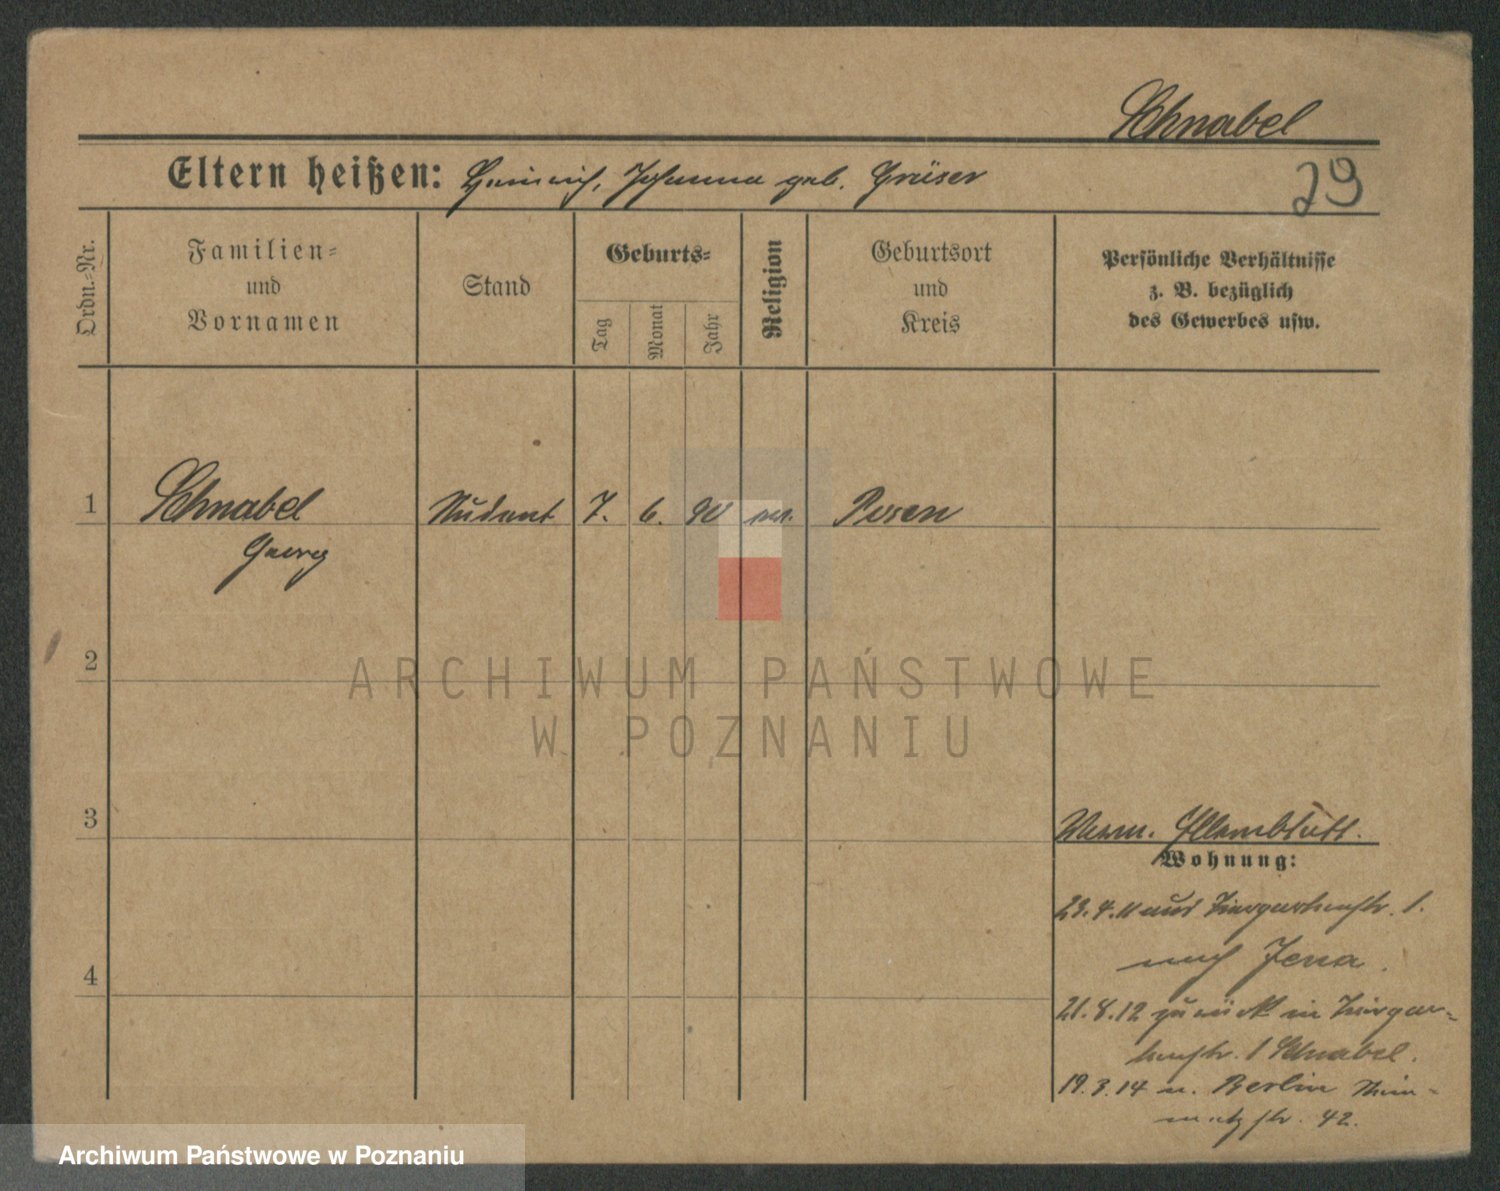 Schnabel
Eltern heißen: Heinrich, Johanna geb. Gräser
29
Ordn.-Nr.
Familien-
und
Vornamen
Stand
Geburts-
Tag
Monat
Jahr
Religion
Geburtsort
und
Kreis
Persönliche Verhältnisse
z. B. bezüglich
des Gewerbes usw.
1 Schnabel Student 7. 6. 90 Posen
Georg
2
ARCHIWUM PAŃSTWOWE
W POZNANIU
3
Wohnung:
23.4.11 aus Tiergartenstr. 1.
nach Jena.
4
21.8.12 zurück in Tiergar-
tenstr. 1 Schnabel.
19.3.14 n. Berlin
str. 42.
Archiwum Państwowe w Poznaniu